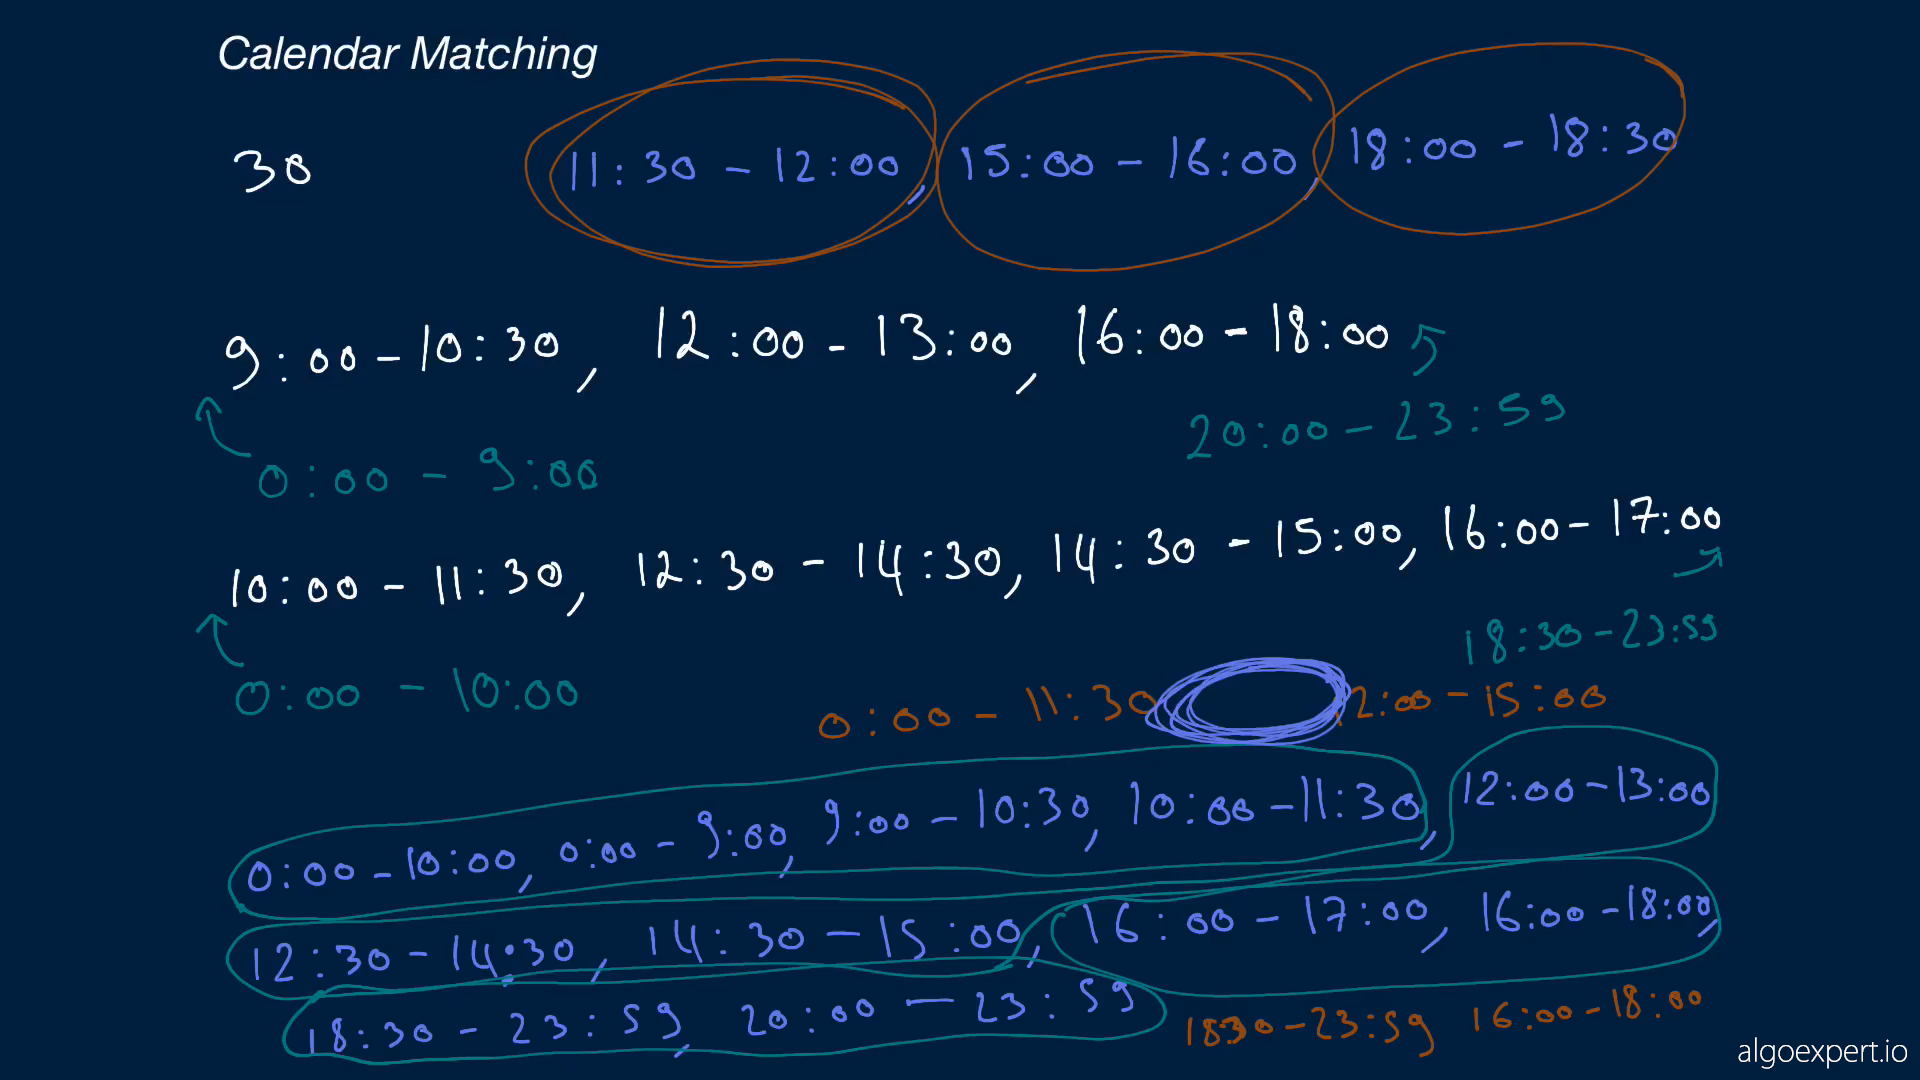 Calendar Matching
30 11:30 - 12:00, 15:00 - 16:00, 18:00 - 18:30
9:00 - 10:30, 12:00 - 13:00, 16:00 - 18:00
20:00 - 23:59
0:00 - 9:00
10:00 - 11:30, 12:30 - 14:30, 14:30 - 15:00, 16:00 - 17:00
18:30 - 23:59
0:00 - 10:00
0:00 - 11:30 12:00 - 15:00
0:00 - 10:00, 0:00 - 9:00, 9:00 - 10:30, 10:00 - 11:30, 12:00 - 13:00
12:30 - 14:30, 14:30 - 15:00, 16:00 - 17:00, 16:00 - 18:00,
18:30 - 23:59, 20:00 - 23:59
1830 - 23:59 16:00 - 18:00
algoexpert.io